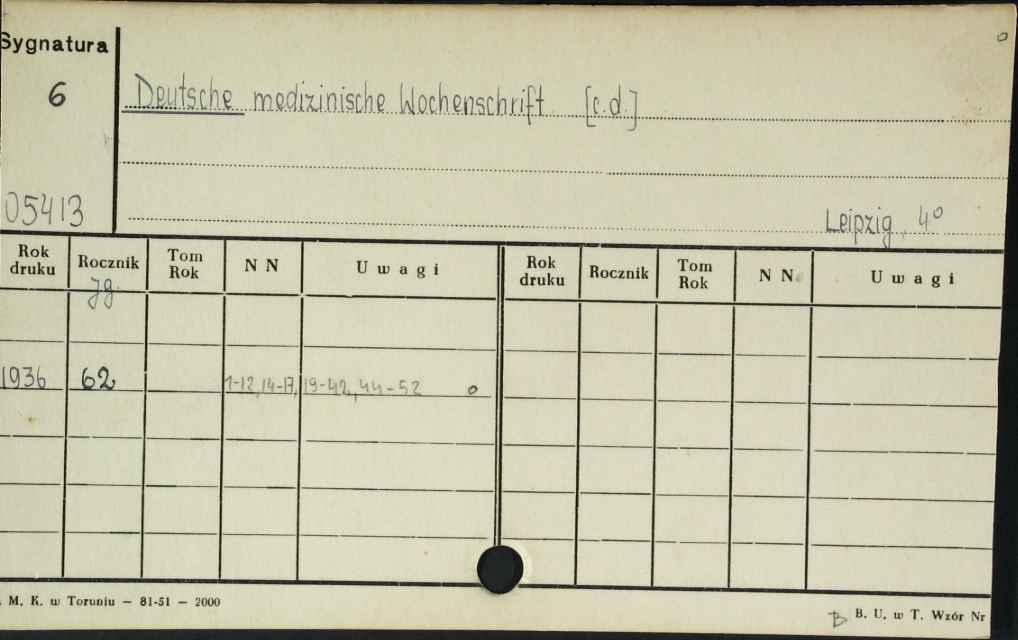 Sygnatura
6
Deutsche medizinische Wochenschrift [c.d.]
05413
Leipzig, 4°
Rok druku Rocznik Tom Rok N N Uwagi Rok druku Rocznik Tom Rok N N Uwagi
Jg.
1936 62 1-12, 14-17, 19-42, 44-52 o
M. K. w Toruniu — 81-51 — 2000
B. U. w T. Wzór Nr